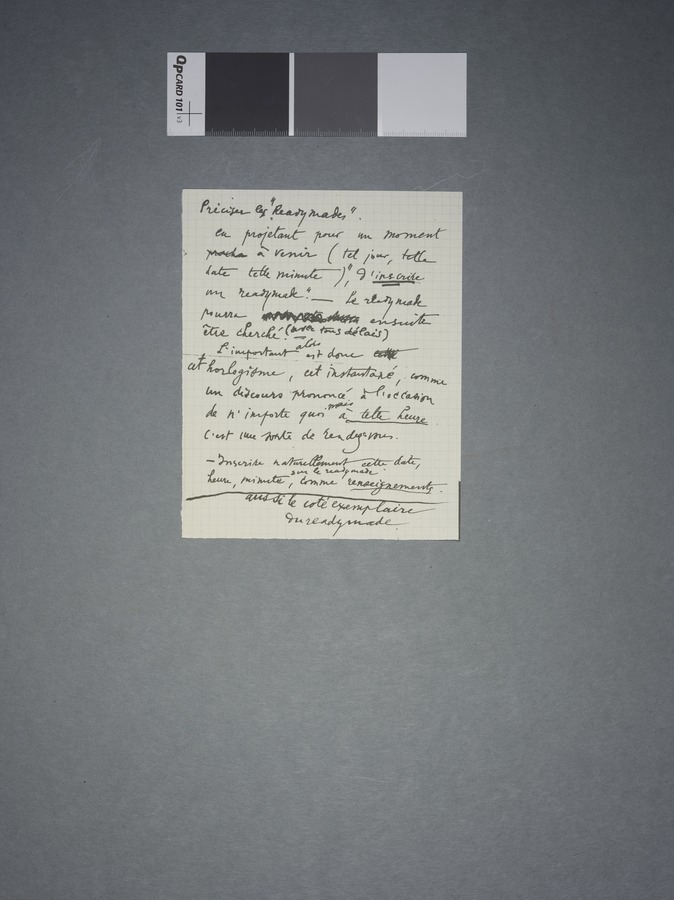 QPCARD 101 v3
Préciser les "Readymades".
en projetant pour un moment
proche à venir (tel jour, telle
date telle minute), "d'inscrire
un readymade". — Le readymade
pourra ensuite
être cherché. (avec tous délais)
L'important alors est donc cette
cet horlogisme, cet instantané, comme
un discours prononcé à l'occasion
de n'importe quoi mais à telle heure.
C'est une sorte de rendez-vous.
— Inscrire naturellement cette date,
heure, minute, sur le readymade comme renseignements.
aussi le coté exemplaire
du readymade.